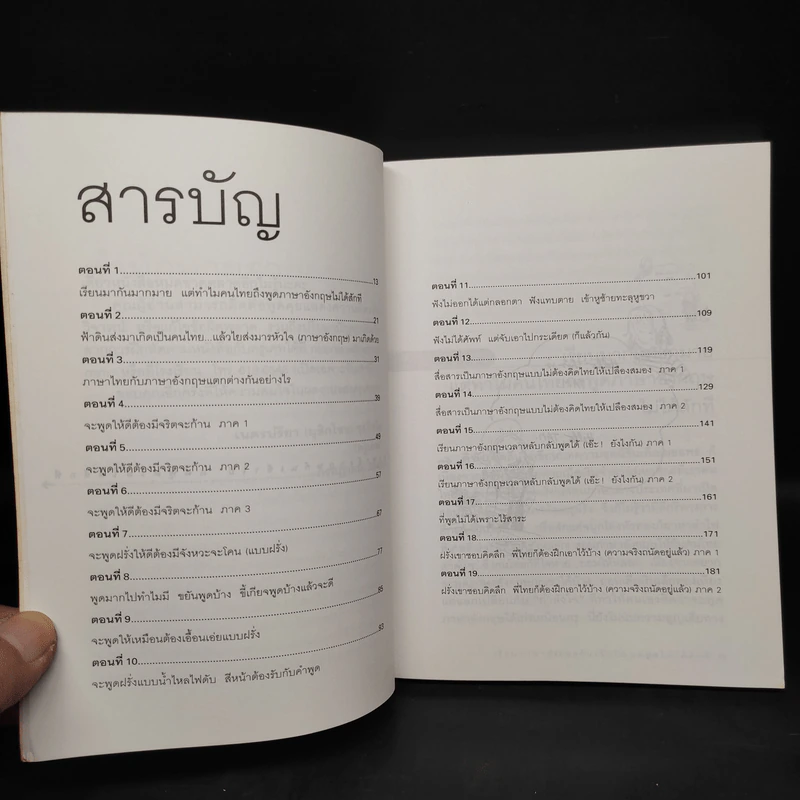 สารบัญ
ตอนที่ 1 13
เรียนมากันมากมาย แต่ทำไมคนไทยถึงพูดภาษาอังกฤษไม่ได้สักที
ตอนที่ 2 21
ฟ้าดินส่งมาเกิดเป็นคนไทย...แล้วไยส่งมารหัวใจ (ภาษาอังกฤษ) มาเกิดด้วย
ตอนที่ 3 31
ภาษาไทยกับภาษาอังกฤษแตกต่างกันอย่างไร
ตอนที่ 4 39
จะพูดให้ดีต้องมีจริตจะก้าน ภาค 1
ตอนที่ 5 49
จะพูดให้ดีต้องมีจริตจะก้าน ภาค 2
ตอนที่ 6 57
จะพูดให้ดีต้องมีจริตจะก้าน ภาค 3
ตอนที่ 7 67
จะพูดฝรั่งให้ดีต้องมีจังหวะจะโคน (แบบฝรั่ง)
ตอนที่ 8 77
พูดมากไปทำไมมี ขยันพูดบ้าง ขี้เกียจพูดบ้างแล้วจะดี
ตอนที่ 9 85
จะพูดให้เหมือนต้องเอื้อนเอ่ยแบบฝรั่ง
ตอนที่ 10 93
จะพูดฝรั่งแบบน้ำไหลไฟดับ สีหน้าต้องรับกับคำพูด
ตอนที่ 11 101
ฟังไม่ออกได้แต่กลอกตา ฟังแทบตาย เข้าหูซ้ายทะลุหูขวา
ตอนที่ 12 109
ฟังไม่ได้ศัพท์ แต่จับเอาไปกระเดียด (ก็แล้วกัน)
ตอนที่ 13 119
สื่อสารเป็นภาษาอังกฤษแบบไม่ต้องคิดไทยให้เปลืองสมอง ภาค 1
ตอนที่ 14 129
สื่อสารเป็นภาษาอังกฤษแบบไม่ต้องคิดไทยให้เปลืองสมอง ภาค 2
ตอนที่ 15 141
เรียนภาษาอังกฤษเวลาหลับกลับพูดได้ (เอ๊ะ! ยังไงกัน) ภาค 1
ตอนที่ 16 151
เรียนภาษาอังกฤษเวลาหลับกลับพูดได้ (เอ๊ะ! ยังไงกัน) ภาค 2
ตอนที่ 17 161
ที่พูดไม่ได้เพราะไร้สาระ
ตอนที่ 18 171
ฝรั่งเขาชอบคิดลึก พี่ไทยก็ต้องฝึกเอาไว้บ้าง (ความจริงถนัดอยู่แล้ว) ภาค 1
ตอนที่ 19 181
ฝรั่งเขาชอบคิดลึก พี่ไทยก็ต้องฝึกเอาไว้บ้าง (ความจริงถนัดอยู่แล้ว) ภาค 2